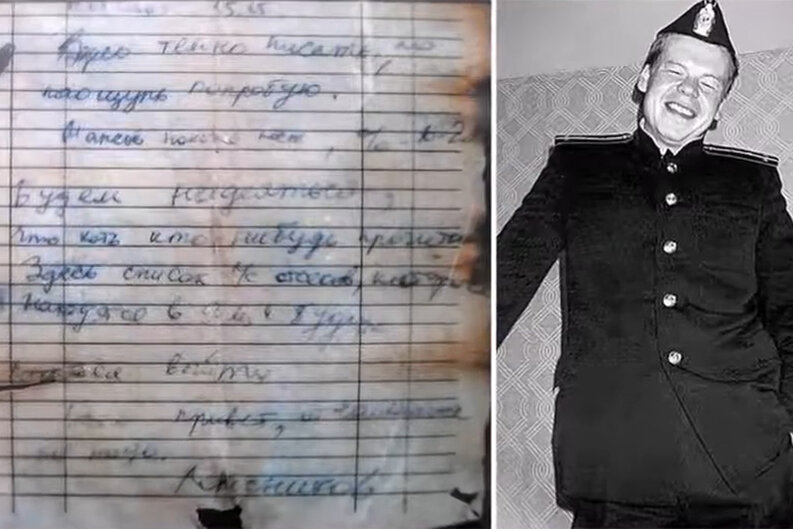 темно писать, но
наощупь попробую.
Шансов похоже нет, %
Будем надеяться,
что хоть кто нибудь прочита
Здесь список л/с отсеков, которые
находятся в 9-м и будут
выйти
привет, отчаиваться
не надо.
Колесников